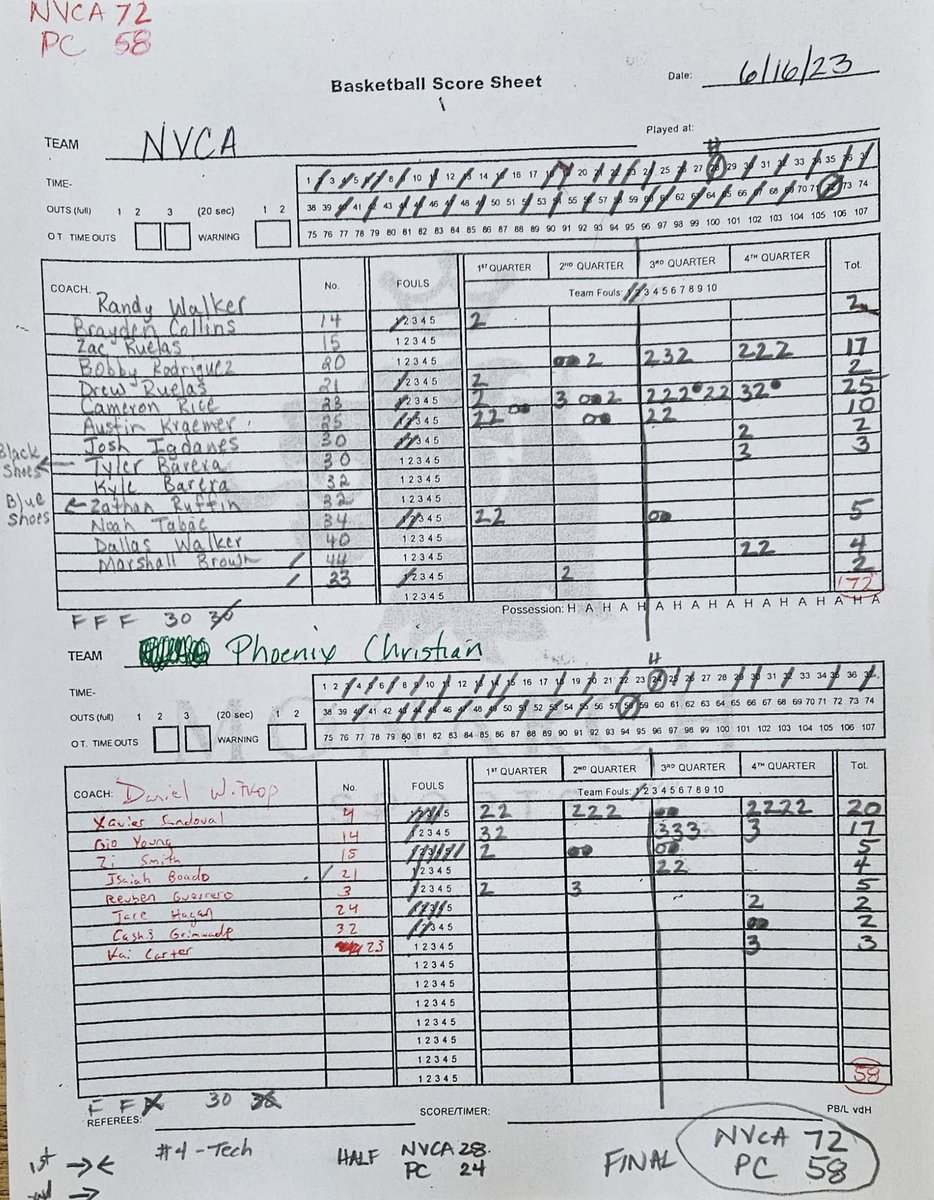 NVCA 72
PC 58
Basketball Score Sheet
Date: 6/16/23
TEAM NVCA
Played at:
H
TIME-
1 2 3 4 5 6 7 8 9 10 11 12 13 14 15 16 17 18 19 20 21 22 23 24 25 26 27 28 29 30 31 32 33 34 35 36 37
OUTS (full) 1 2 3 (20 sec) 1 2
38 39 40 41 42 43 44 45 46 47 48 49 50 51 52 53 54 55 56 57 58 59 60 61 62 63 64 65 66 67 68 69 70 71 72 73 74
O.T. TIME OUTS WARNING
75 76 77 78 79 80 81 82 83 84 85 86 87 88 89 90 91 92 93 94 95 96 97 98 99 100 101 102 103 104 105 106 107
COACH: Randy Walker No. FOULS 1ST QUARTER 2ND QUARTER 3RD QUARTER 4TH QUARTER Tot.
Team Fouls: 1 2 3 4 5 6 7 8 9 10
Brayden Collins 14 1 2 3 4 5 2 2
Zac Ruelas 15 1 2 3 4 5
Bobby Rodriguez 20 1 2 3 4 5 2 232 222 17
Drew Ruelas 21 1 2 3 4 5 2 2
Cameron Rice 23 1 2 3 4 5 2 3 2 222 22 32 25
Austin Kraemer 25 1 2 3 4 5 22 22 10
Josh Igdanes 30 1 2 3 4 5 2 2
Black Shoes Tyler Barera 30 1 2 3 4 5 3 3
Kyle Barera 32 1 2 3 4 5
Blue Shoes Zathan Ruffin 32 1 2 3 4 5
Noah Tabac 34 1 2 3 4 5 22 5
Dallas Walker 40 1 2 3 4 5
Marshall Brown 44 1 2 3 4 5 22 4
33 1 2 3 4 5 2 2
1 2 3 4 5 72
Possession: H A H A H A H A H A H A H A H A H A
F F F 30 30
TEAM Phoenix Christian
H
TIME-
1 2 3 4 5 6 7 8 9 10 11 12 13 14 15 16 17 18 19 20 21 22 23 24 25 26 27 28 29 30 31 32 33 34 35 36 37
OUTS (full) 1 2 3 (20 sec) 1 2
38 39 40 41 42 43 44 45 46 47 48 49 50 51 52 53 54 55 56 57 58 59 60 61 62 63 64 65 66 67 68 69 70 71 72 73 74
O.T. TIME OUTS WARNING
75 76 77 78 79 80 81 82 83 84 85 86 87 88 89 90 91 92 93 94 95 96 97 98 99 100 101 102 103 104 105 106 107
COACH: Daniel No. FOULS 1ST QUARTER 2ND QUARTER 3RD QUARTER 4TH QUARTER Tot.
Team Fouls: 1 2 3 4 5 6 7 8 9 10
Xavier Sandoval 4 1 2 3 4 5 22 222 2222 20
Gio Young 14 1 2 3 4 5 32 333 3 17
Zi Smith 15 1 2 3 4 5 2 5
Isaiah Boado 21 1 2 3 4 5 22 4
Reuben Guerrero 3 1 2 3 4 5 2 3 5
Jace Hagan 24 1 2 3 4 5 2 2
Cash 32 1 2 3 4 5 2
Kai Carter 23 1 2 3 4 5 3 3
1 2 3 4 5
1 2 3 4 5
1 2 3 4 5
1 2 3 4 5
1 2 3 4 5
1 2 3 4 5
1 2 3 4 5 58
F F 30
REFEREES: SCORE/TIMER: PB/L vdH
#4 - Tech
HALF NVCA 28
PC 24
FINAL NVCA 72
PC 58
1st